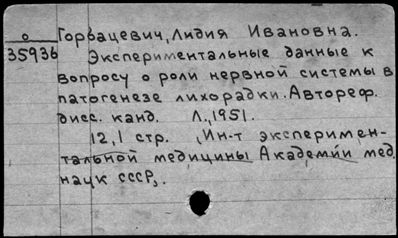 О
35936
Горбацевич, Лидия Ивановна.
Экспериментальные данные к
вопросу о роли нервной системы в
патогенезе лихорадки. Автореф.
дисс. канд. Л., 1951.
12,1 стр. (Ин-т эксперимен-
тальной медицины Академии мед.
наук СССР).